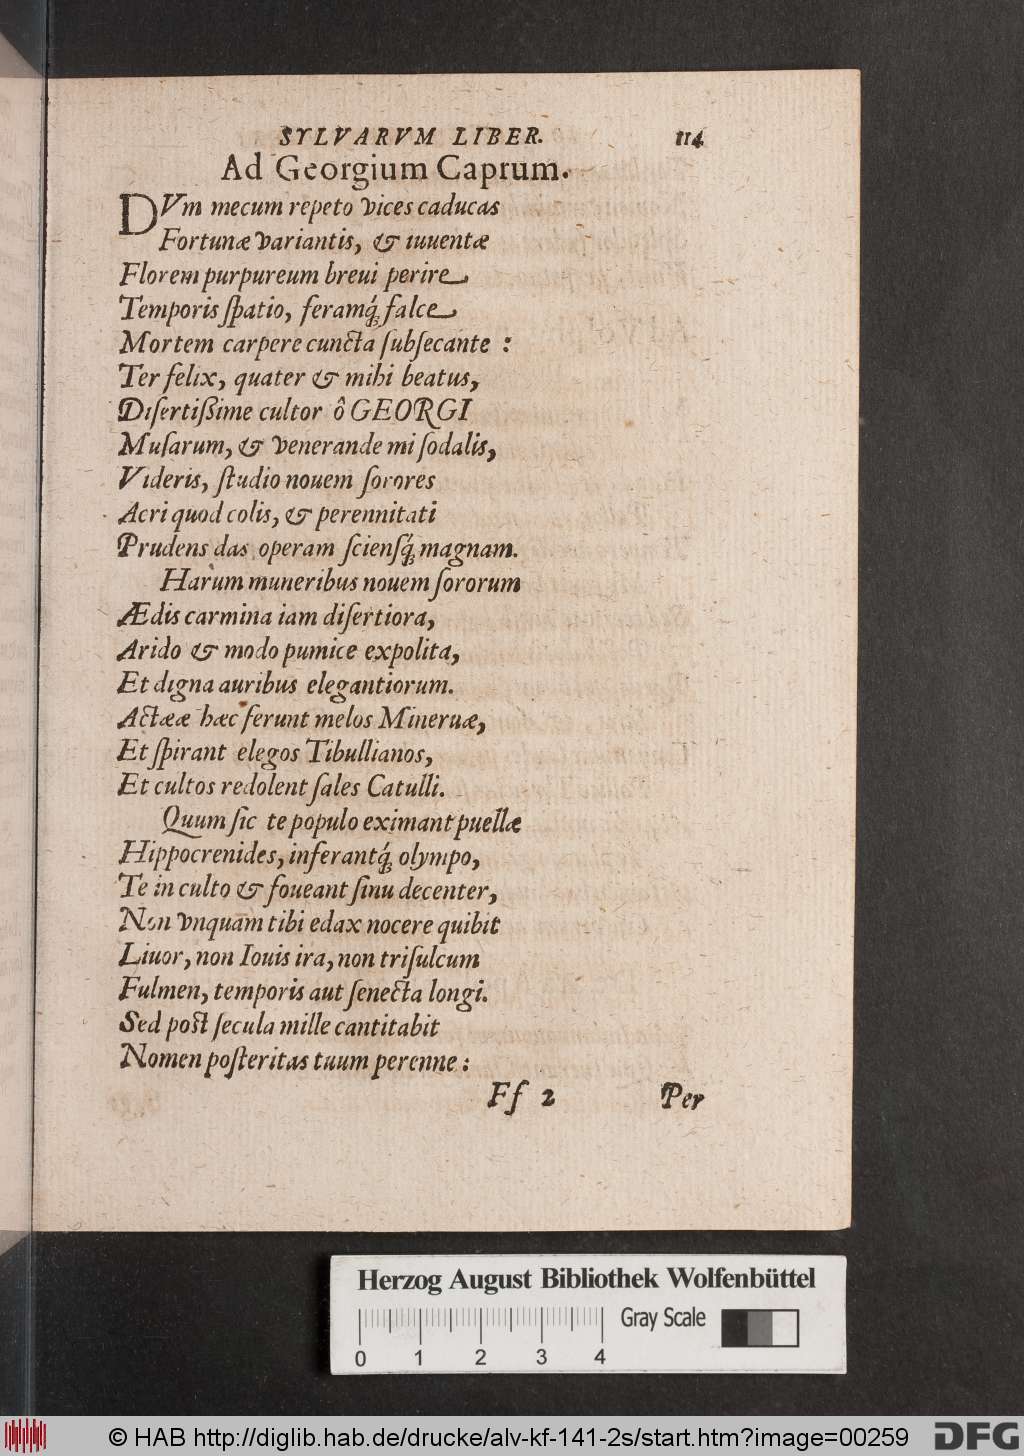 SYLVARVM LIBER. 114
Ad Georgium Caprum.
DVm mecum repeto vices caducas
Fortunæ variantis, & iuuentæ
Florem purpureum breui perire
Temporis ſpatio, feramq́; falce
Mortem carpere cuncta ſubſecante :
Ter felix, quater & mihi beatus,
Diſertißime cultor ô GEORGI
Muſarum, & venerande mi ſodalis,
Videris, ſtudio nouem ſorores
Acri quod colis, & perennitati
Prudens das operam ſcienſq́; magnam.
Harum muneribus nouem ſororum
Ædis carmina iam diſertiora,
Arido & modo pumice expolita,
Et digna auribus elegantiorum.
Actææ hæc ferunt melos Mineruæ,
Et ſpirant elegos Tibullianos,
Et cultos redolent ſales Catulli.
Quum ſic te populo eximant puellæ
Hippocrenides, inferantq́; olympo,
Te in culto & foueant ſinu decenter,
Non vnquam tibi edax nocere quibit
Liuor, non Iouis ira, non triſulcum
Fulmen, temporis aut ſenecta longi.
Sed poſt ſecula mille cantitabit
Nomen poſteritas tuum perenne :
Ff 2 Per
Herzog August Bibliothek Wolfenbüttel
Gray Scale
0 1 2 3 4
© HAB http://diglib.hab.de/drucke/alv-kf-141-2s/start.htm?image=00259
DFG